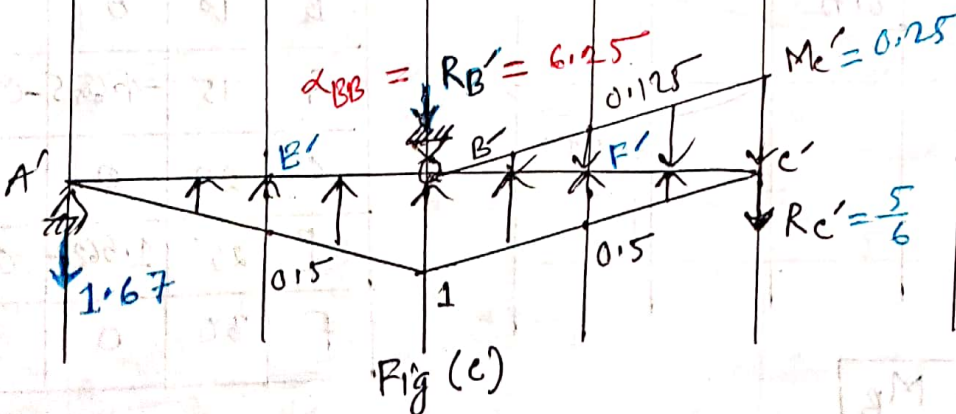 αBB = RB' = 6.25
Mc' = 0.25
0.125
A' E' B' F' C'
Rc' = 5/6
1.67
0.5
1
0.5
Fig (e)